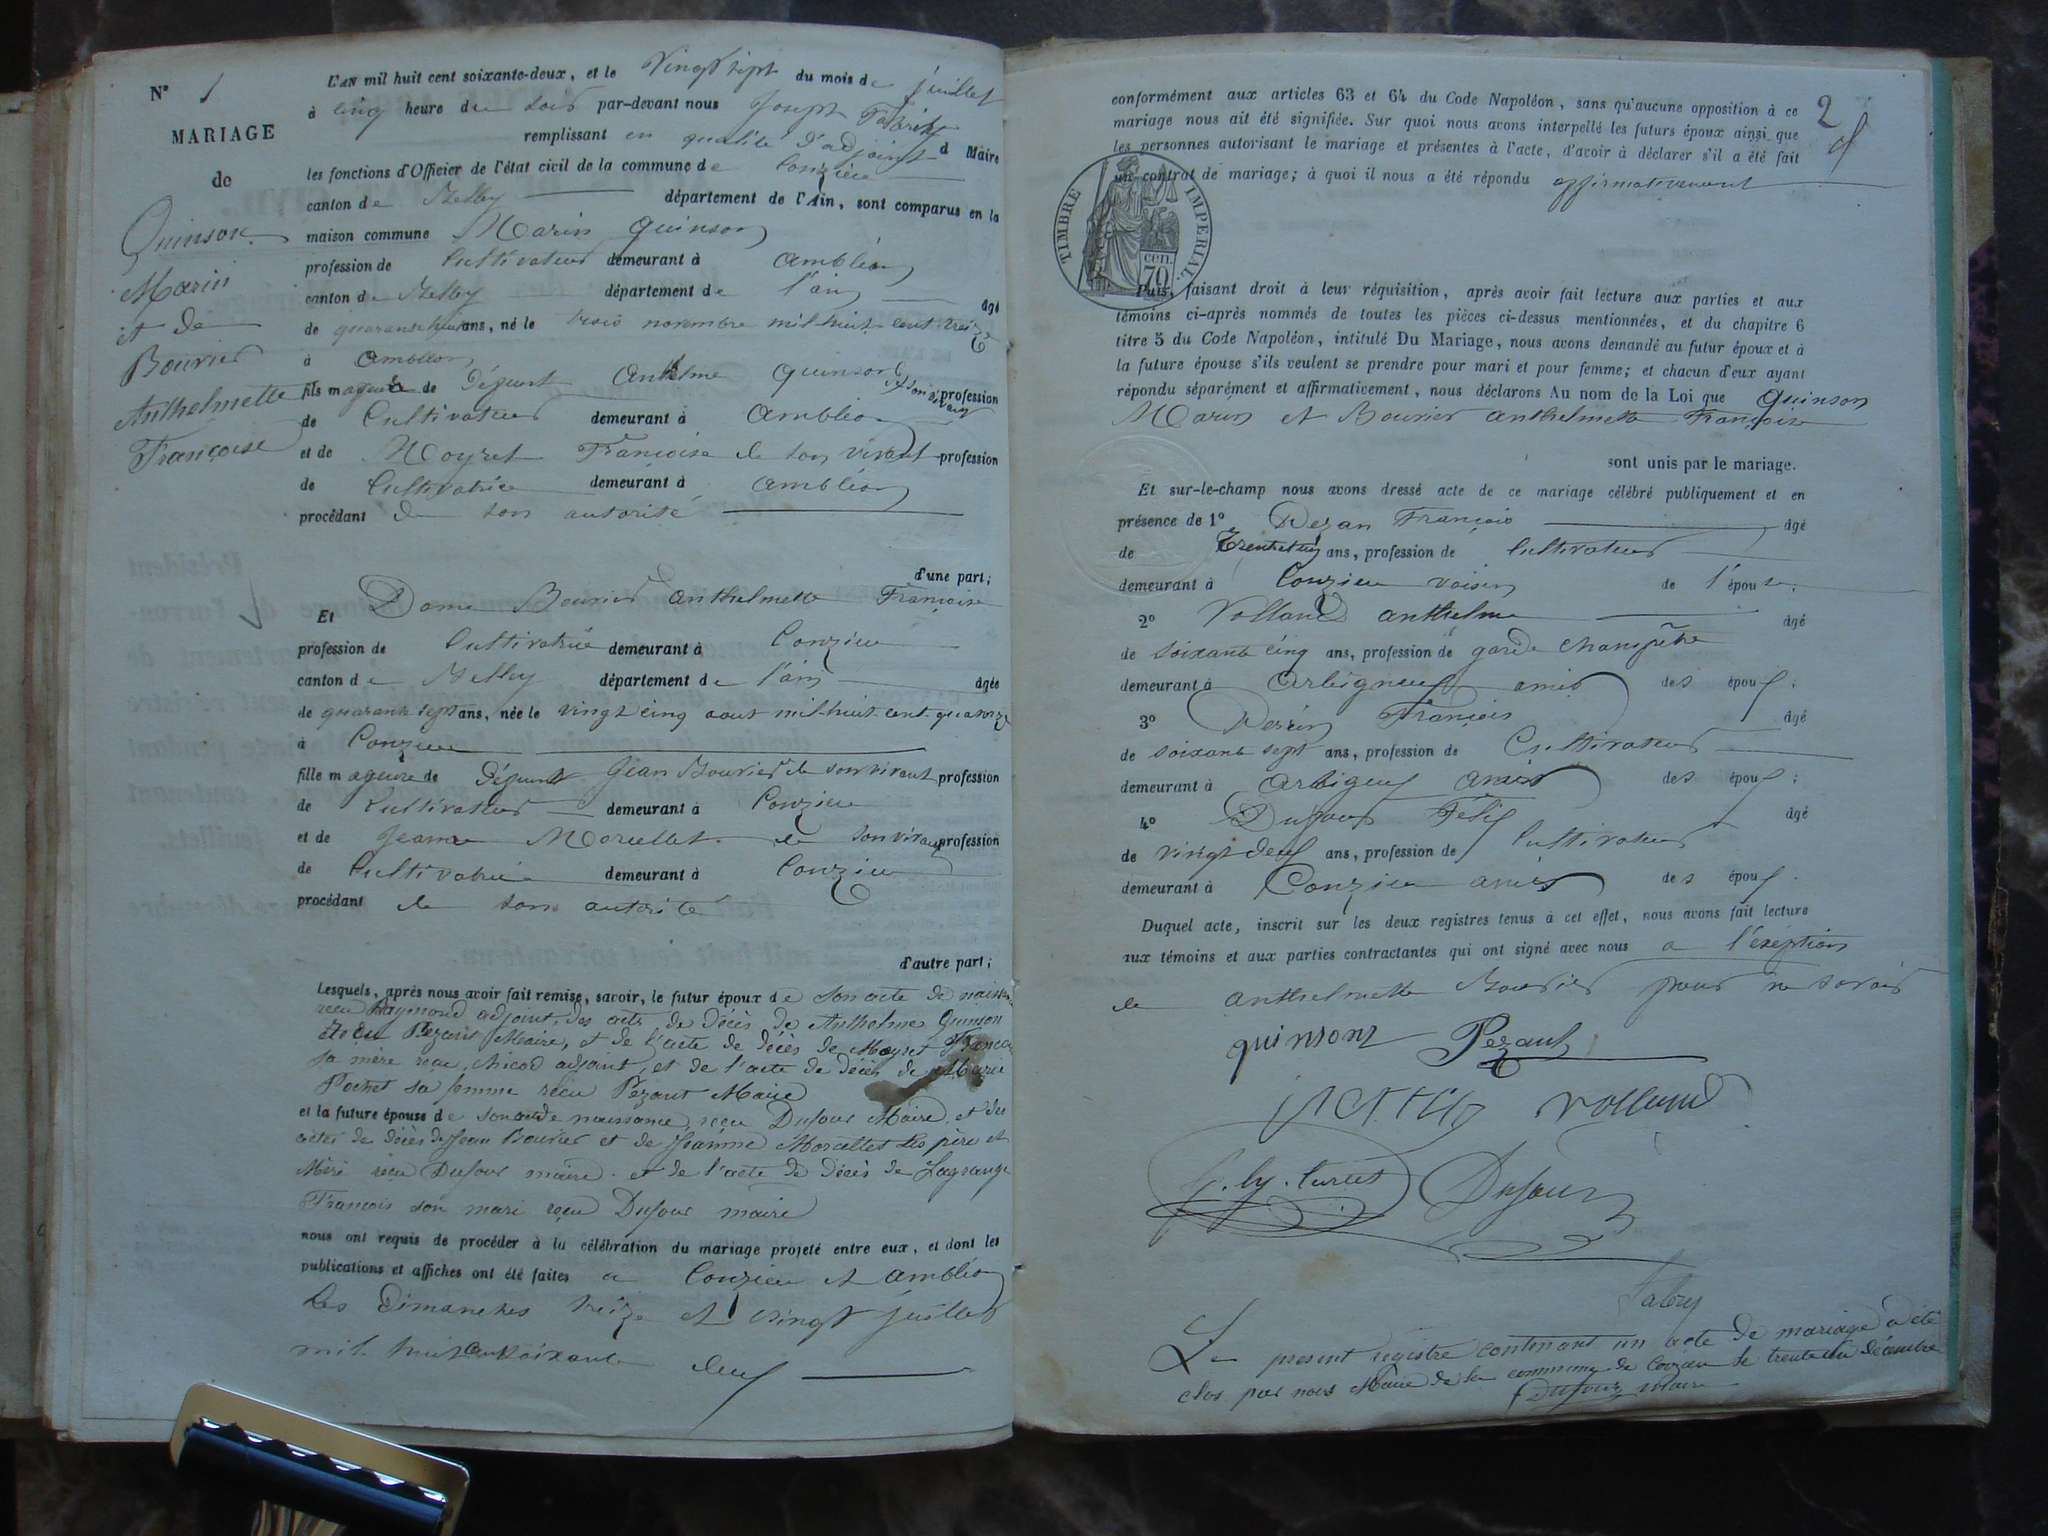 N° 1
MARIAGE
de
Quinson
Marin
et de
Bouvier
Anthelmette
Françoise
L'AN mil huit cent soixante-deux, et le Vingt sept du mois de juillet
à cinq heure du soir par-devant nous Joseph
remplissant en qualité d'adjoint d Maire
les fonctions d'Officier de l'état civil de la commune de Conzieu
canton de Belley département de l'Ain, sont comparus en la
maison commune Marin Quinson
profession de Cultivateur demeurant à Ambléon
canton de Belley département de l'ain âgé
de quarante huit ans, né le trois novembre mil huit cent treize
à Ambléon
fils majeur de Défunt Anthelme Quinson de son vivant profession
de Cultivateur demeurant à Ambléon
et de Moyret Françoise de son vivant profession
de Cultivatrice demeurant à Ambléon
procédant de son autorité
d'une part;
Et Dame Bouvier Anthelmette Françoise
profession de Cultivatrice demeurant à Conzieu
canton de Belley département de l'ain âgée
de quarante sept ans, née le vingt cinq aout mil huit cent quatorze
à Conzieu
fille majeure de Défunt Jean Bouvier de son vivant profession
de Cultivateur demeurant à Conzieu
et de Jeanne Morcellet de son vivant profession
de Cultivatrice demeurant à Conzieu
procédant de son autorité
d'autre part;
Lesquels, après nous avoir fait remise, savoir, le futur époux de son acte de naiss
reçu Reymond adjoint, des acte de décès de Anthelme Quinson
reçu Pezant Maire, et de l'acte de décès de Moyret
sa mère reçu, Nicod adjoint, et de l'acte de décès de Marie
Pochet sa femme reçu Pezant Maire
et la future épouse de son acte de naissance reçu Dufour Maire et des
actes de décès de Jean Bouvier et de Jeanne Morcellet ses père et
Mère reçu Dufour maire et de l'acte de décès de Lagrange
François son mari reçu Dufour maire
nous ont requis de procéder à la célébration du mariage projeté entre eux, et dont les
publications et affiches ont été faites a Conzieu et Ambléon
les Dimanches treize et vingt juillet
mil huit cent soixante deux
2
conformément aux articles 63 et 64 du Code Napoléon, sans qu'aucune opposition à ce
mariage nous ait été signifiée. Sur quoi nous avons interpellé les futurs époux ainsi que
les personnes autorisant le mariage et présentes à l'acte, d'avoir à déclarer s'il a été fait
un contrat de mariage; à quoi il nous a été répondu affirmativement
TIMBRE IMPERIAL
70 cen.
Puis, faisant droit à leur réquisition, après avoir fait lecture aux parties et aux
témoins ci-après nommés de toutes les pièces ci-dessus mentionnées, et du chapitre 6
titre 5 du Code Napoléon, intitulé Du Mariage, nous avons demandé au futur époux et à
la future épouse s'ils veulent se prendre pour mari et pour femme; et chacun d'eux ayant
répondu séparément et affirmativement, nous déclarons Au nom de la Loi que Quinson
Marin et Bouvier Anthelmette Françoise
sont unis par le mariage.
Et sur-le-champ nous avons dressé acte de ce mariage célébré publiquement et en
présence de 1° François âgé
de ans, profession de Cultivateur
demeurant à Conzieu voisin de l'épouse;
2° Volland Anthelme âgé
de soixante cinq ans, profession de garde champêtre
demeurant à Arbignieu amis des époux;
3° François âgé
de soixante sept ans, profession de Cultivateur
demeurant à amis des époux;
4° Dufour Félix âgé
de vingt deux ans, profession de Cultivateur
demeurant à Conzieu amis des époux.
Duquel acte, inscrit sur les deux registres tenus à cet effet, nous avons fait lecture
aux témoins et aux parties contractantes qui ont signé avec nous a l'exéption
de Anthelmette Bouvier pour ne savoir
quinson Pezant
Volland
Dufour
Le present registre contenant un acte de mariage a été
clos par nous Maire de la commune de Conzieu le trente un décembre
Dufour maire